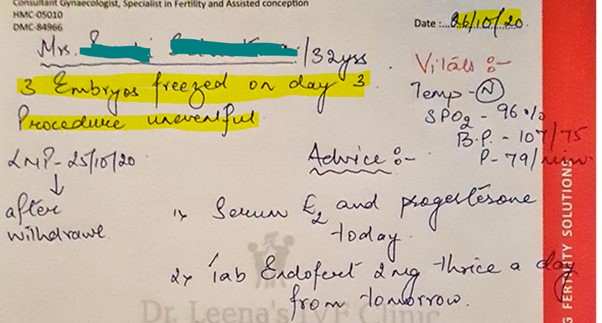 Consultant Gynaecologist, Specialist in Fertility and Assisted conception
HMC-05010
DMC-84966
Date :. 26/10/20
Mrs. /32yrs
3 Embryos freezed on day 3
Procedure uneventful
Vitals :-
Temp - N
SPO2 - 96 %
B.P. - 107/75
P - 79/min
LMP - 25/10/20
↓
after
withdrawl
Advice :-
1) Serum E2 and progesterone
today.
2) Tab Endofert 2mg thrice a day
from tomorrow.
Dr. Leena's IVF Clinic
G FERTILITY SOLUTIONS